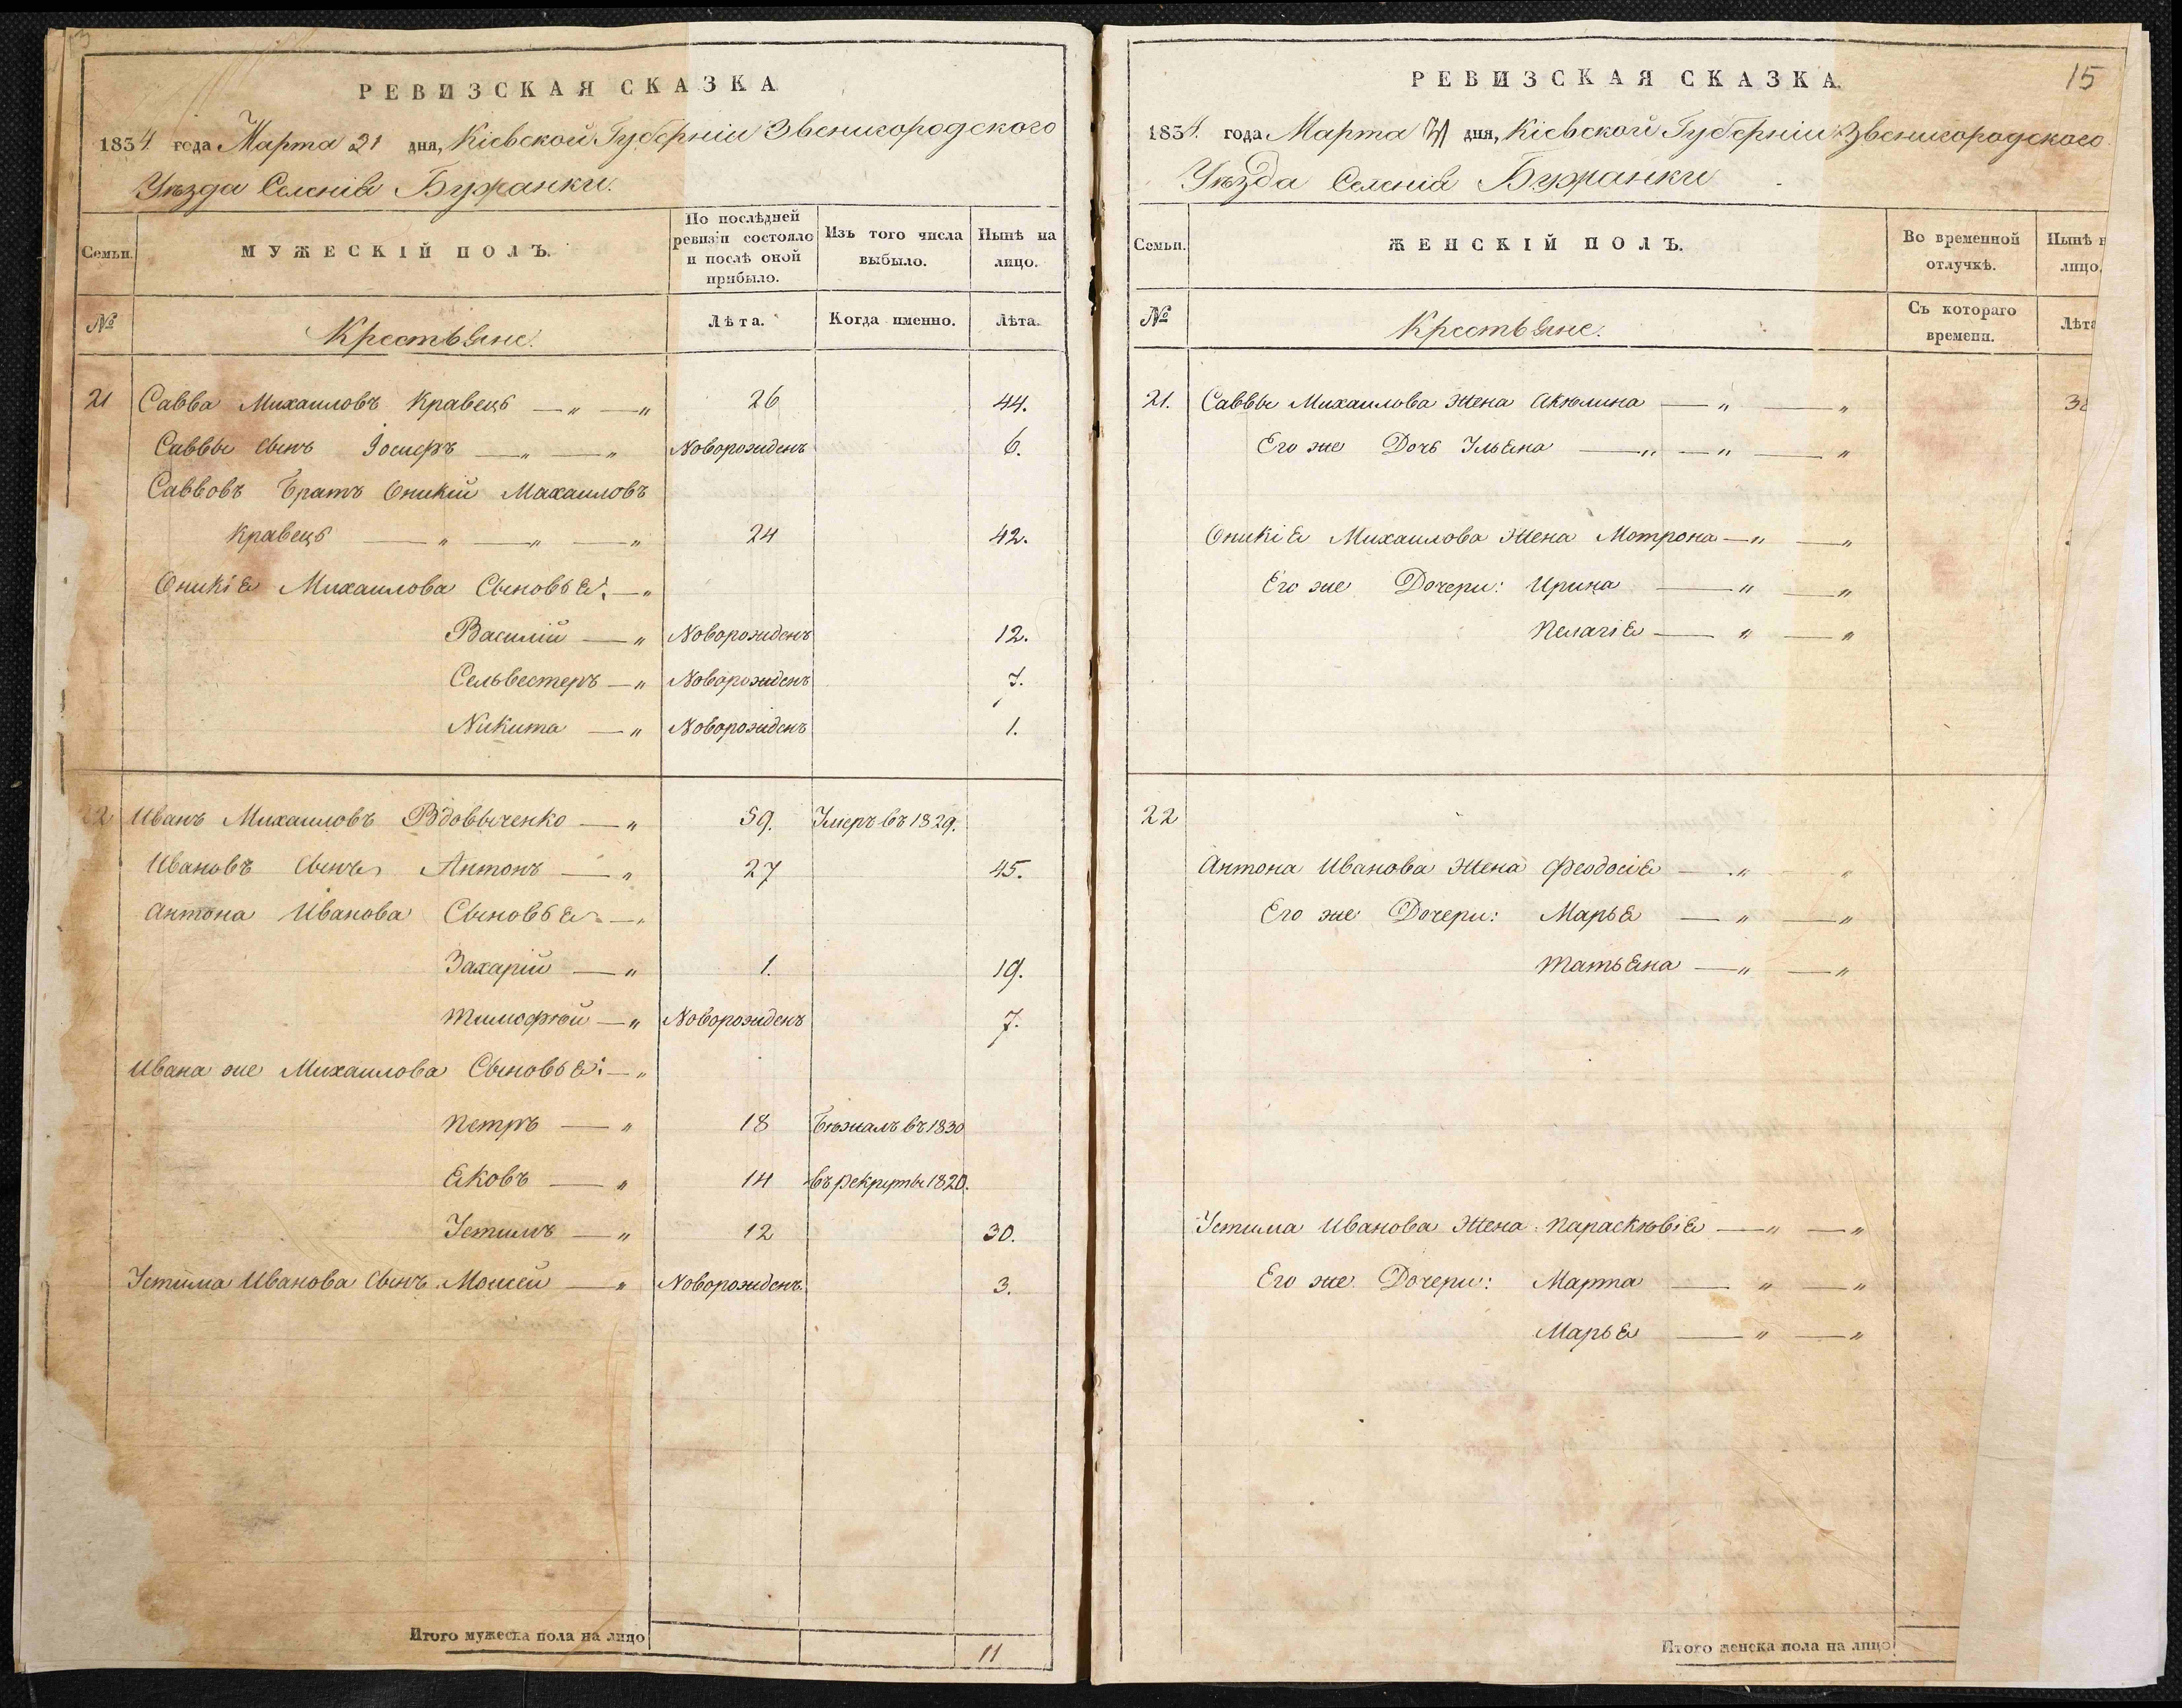 РЕВИЗСКАЯ СКАЗКА
1834 года Марта 21 дня, Кіевской Губерніи Звенигородского
Уѣзда Селенія Бужанки.
Семьи.
МУЖЕСКІЙ ПОЛЪ.
По послѣдней ревизіи состояло и послѣ оной прибыло.
Изъ того числа выбыло.
Нынѣ на лицо.
№
Крестьяне.
Лѣта.
Когда именно.
Лѣта.
21 Савва Михаиловъ Кравець — „ — „ 26 44.
Саввы сынъ Іосифъ — „ — „ Новорожденъ 6.
Саввовъ Братъ Оникій Михаиловъ
Кравець — „ — „ — „ 24 42.
Оникія Михаилова Сыновья: — „
Василій — „ Новорожденъ 12.
Сельвестеръ — „ Новорожденъ 7.
Никита — „ Новорожденъ 1.
22 Иванъ Михаиловъ Вдовыченко — „ 59. Умеръ въ 1829.
Ивановъ Сынъ Антонъ — „ 27 45.
Антона Иванова Сыновья — „
Захарій — „ 1. 19.
Тимофѣй — „ Новорожденъ 7.
Ивана же Михаилова Сыновья: — „
Петръ — „ 18 Бѣжалъ въ 1830
Яковъ — „ 14 въ рекруты 1820.
Устимъ — „ 12 30.
Устима Иванова Сынъ Моисей — „ Новорожденъ. 3.
Итого мужеска пола на лицо
11
15
РЕВИЗСКАЯ СКАЗКА
1834. года Марта 21 дня, Кіевской Губерніи Звенигородского
Уѣзда Селенія Бужанки
Семьи.
ЖЕНСКІЙ ПОЛЪ.
Во временной отлучкѣ.
Нынѣ н лицо.
№
Крестьяне.
Съ котораго времени.
Лѣта
21. Саввы Михаилова Жена Акюлина — „ — „
Его же Дочь Ульяна — „ — „ — „
Оникія Михаилова Жена Мотрона — „ — „
Его же Дочери: Ирина — „ — „
Пелагія — „ — „
22
Антона Иванова Жена Феодосія — „ „
Его же Дочери: Марья — „ — „
Татьяна — „ — „
Устима Иванова Жена Параскѣвія — „ — „
Его же Дочери: Марта — „ — „
Марья — „ — „
Итого женска пола на лицо